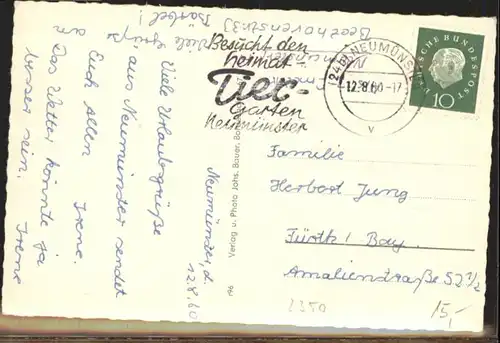 Neumünster, d.
12.8.60
Viele Urlaubsgrüße
aus Neumünster sendet
Euch allen
Irene.
Das Wetter könnte ja
besser sein. Irene
Viele Grüße
Bärbel!
Beethovenstr.
Verlag u. Photo Johs. Bauer,
96
Besucht den
heimat-
Tier-
garten
Neumünster
(24b) NEUMÜNSTER
12.8.60-17
v
DEUTSCHE BUNDESPOST
10
Familie
Herbert Jung
Fürth / Bay.
Amalienstraße 52 1/2
15,-